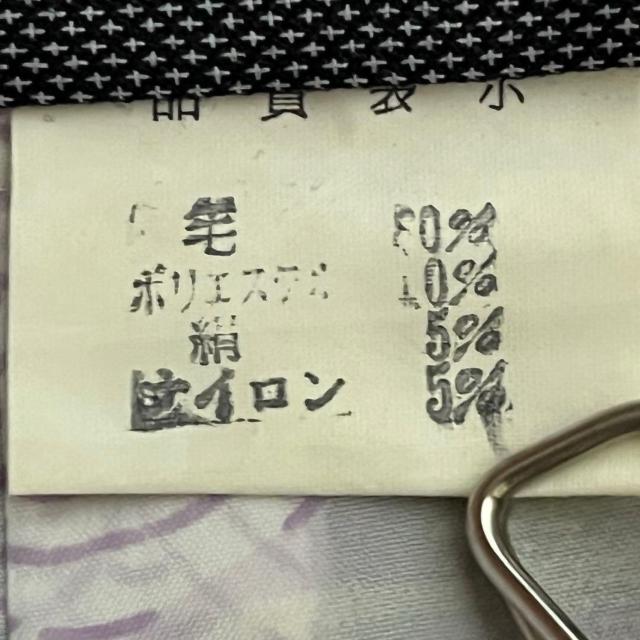 品質表示
毛 80%
ポリエステル 10%
絹 5%
ナイロン 5%